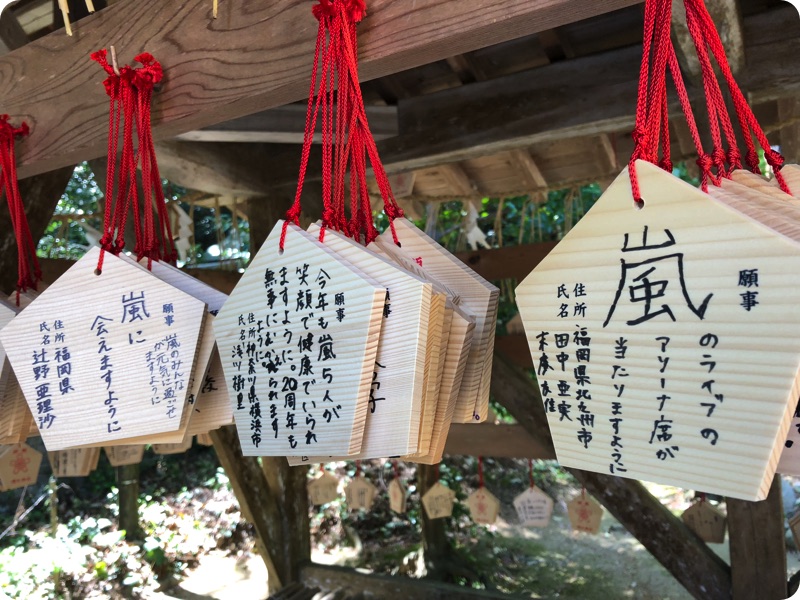 願事
嵐に
会えますように
嵐のみんな
が元気に過ごせ
ますように
住所 福岡県
氏名 辻野 亜理沙
願事
今年も嵐5人が
笑顔で健康でいられ
ますように。20周年も
無事にむかえられます
ように。
住所 神奈川県横浜市
氏名
願事
嵐
のライブの
アリーナ席が
当たりますように
住所 福岡県北九州市
氏名 田中 亜実
願事